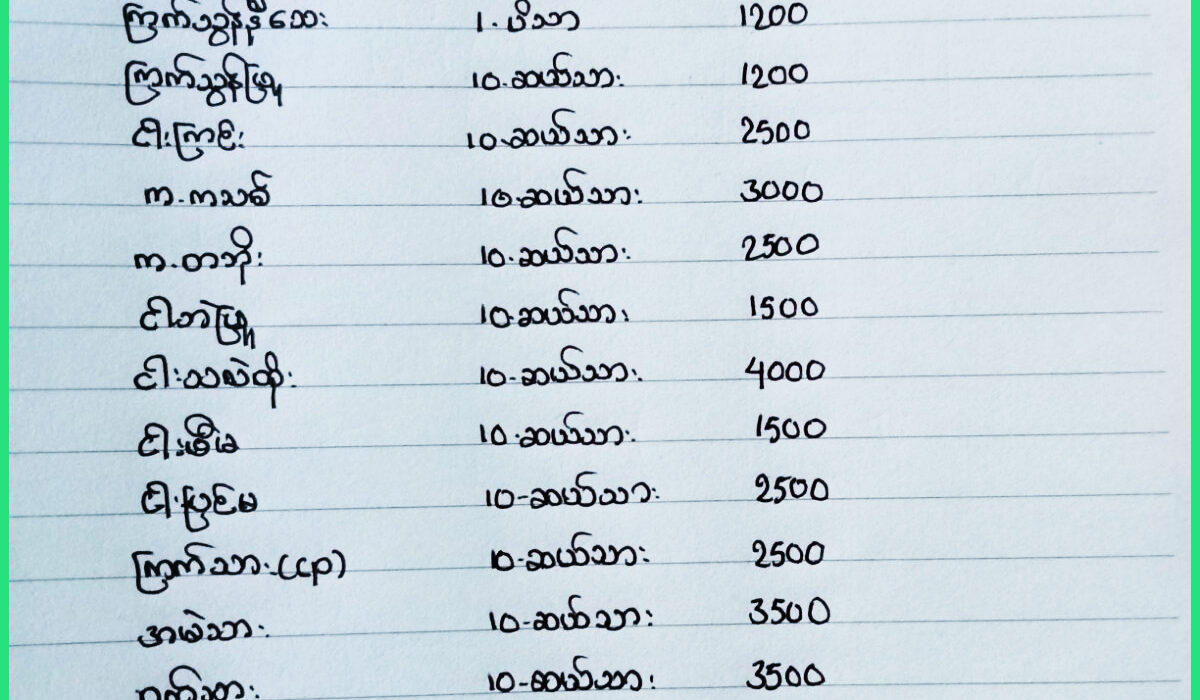 ကြက်သွန်နီသေး 1.ပိဿာ 1200
ကြက်သွန်ဖြူ 10.ဆယ်သား 1200
ငါးကြင်း 10.ဆယ်သား 2500
က.ကသစ် 10.ဆယ်သား 3000
က.တဘိုး 10.ဆယ်သား 2500
ငါးဘဲဖြူ 10.ဆယ်သား 1500
ငါးသလဲထိုး 10-ဆယ်သား 4000
10.ဆယ်သား 1500
ငါးပြင်မ 10-ဆယ်သား 2500
ကြက်သား(cp) 10-ဆယ်သား 2500
အမဲသား 10-ဆယ်သား 3500
ဝက်သား 10-ဆယ်သား 3500